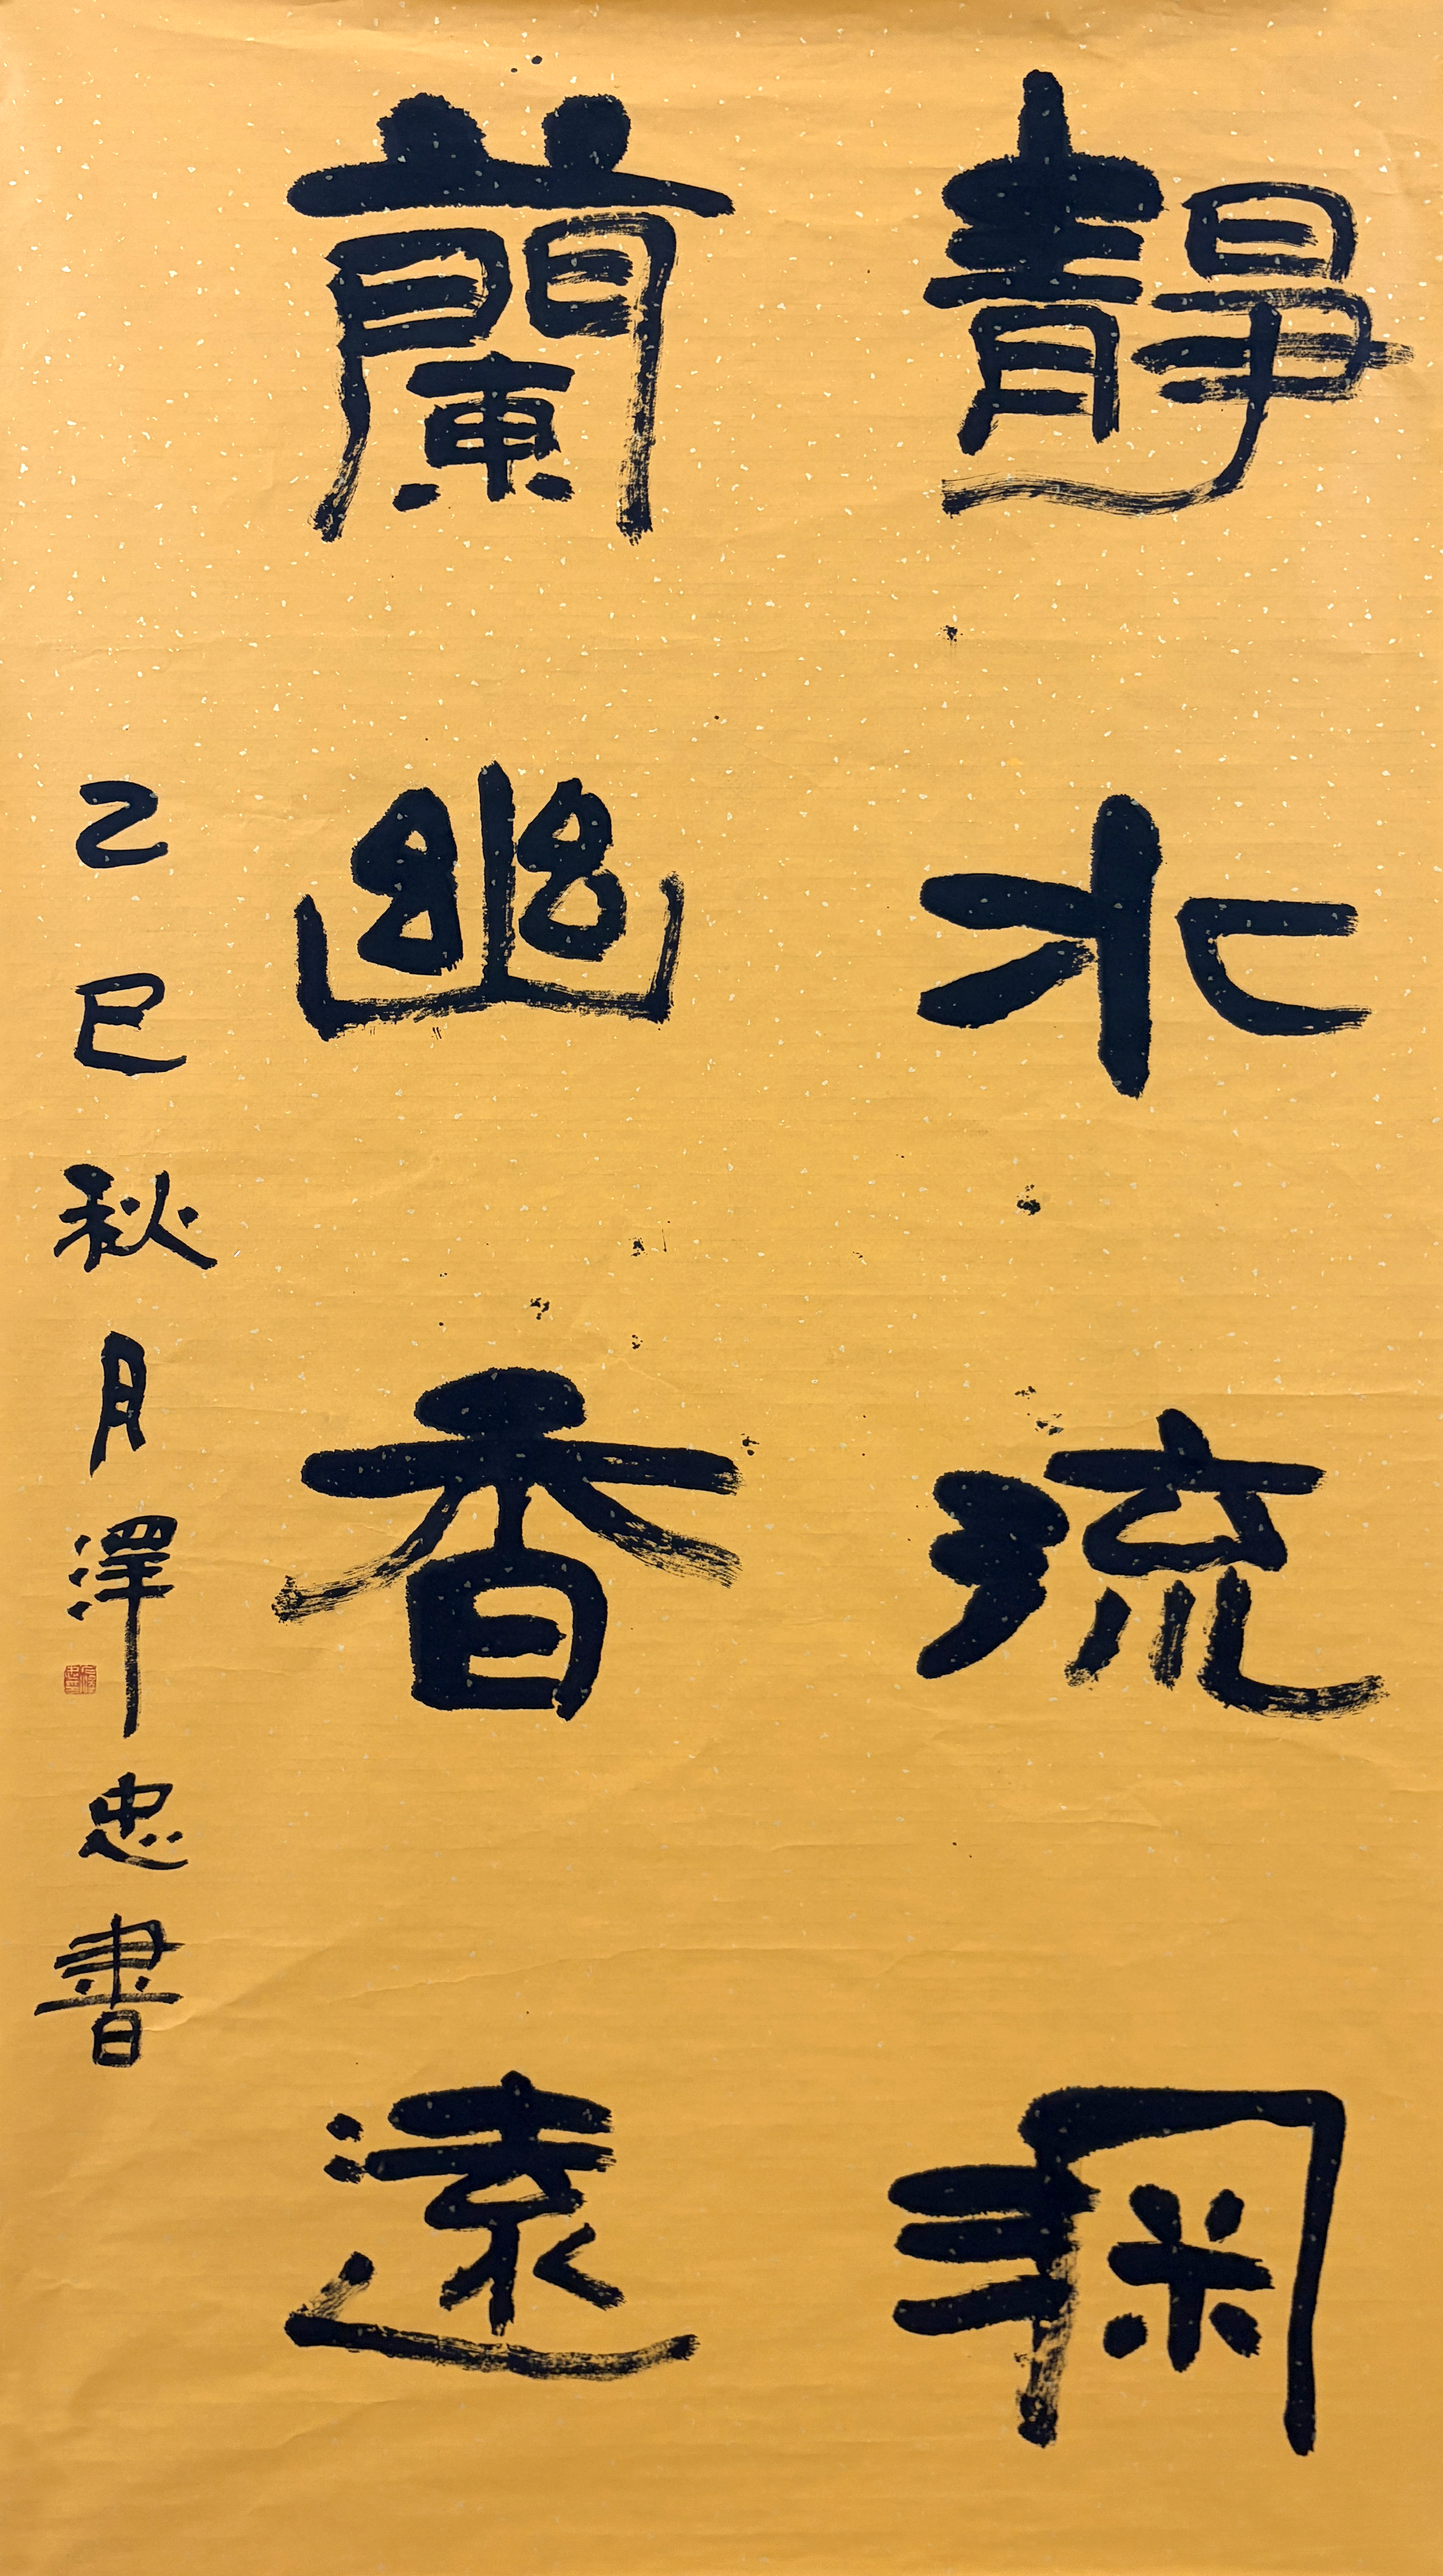 靜水流深
蘭幽香遠
乙巳秋月澤忠書